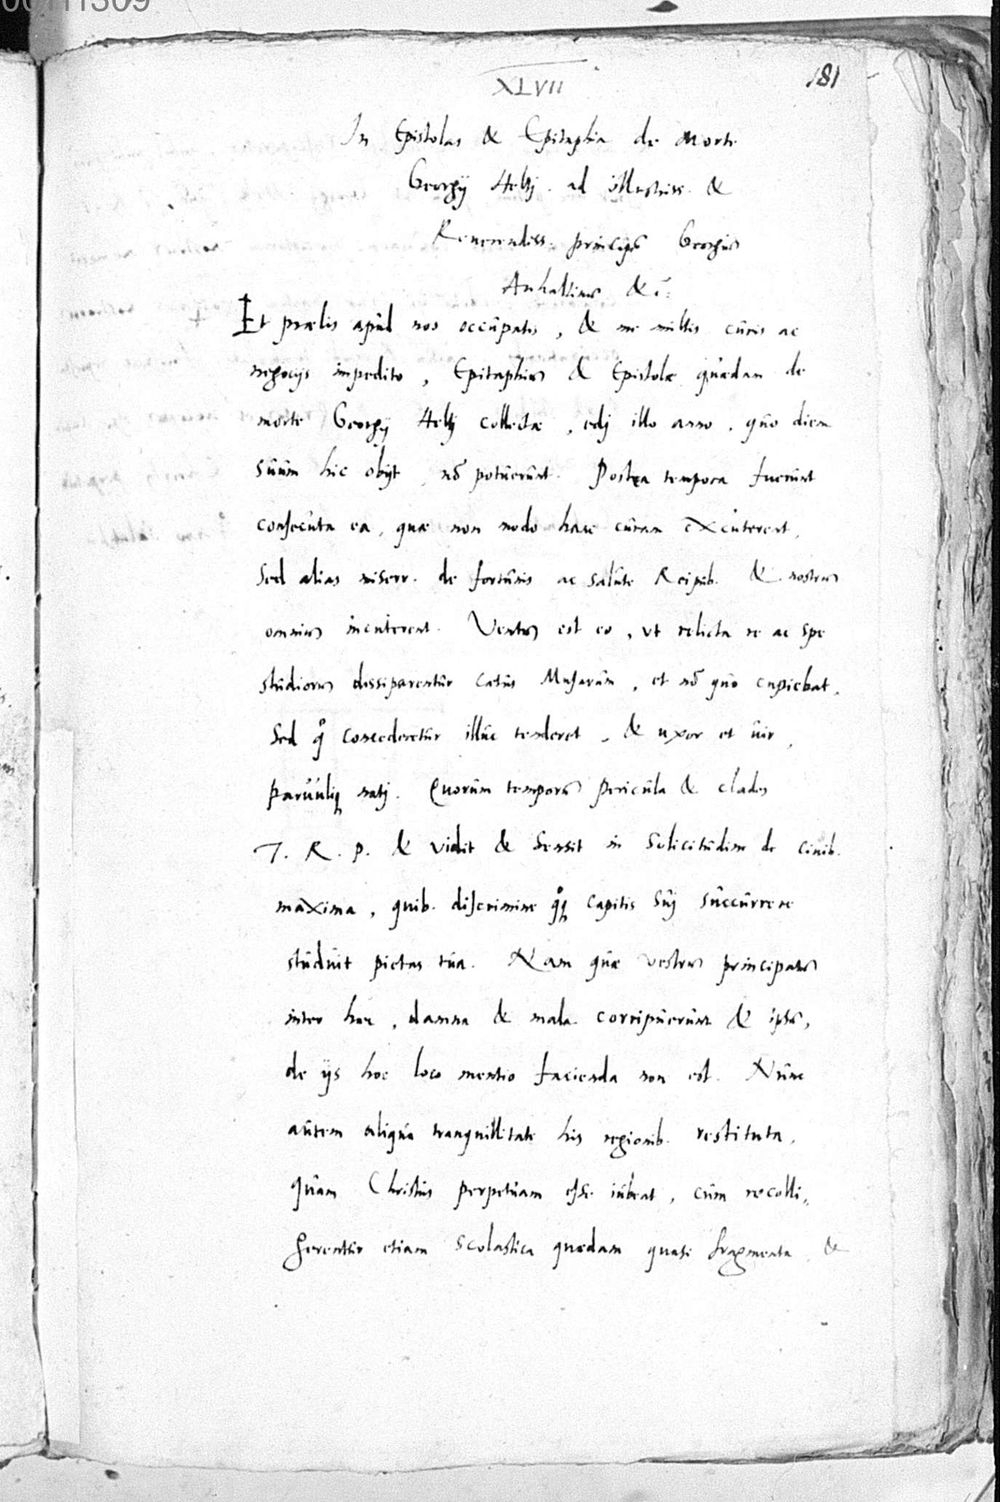 00111309
XLVII
181
In Epistolas & Epitaphia de Morte
Georgij Heltj. ad illustriss. &
Reuerendiss. principē Georgiū
Anhaltinū &c:
Et prælis apûd nos occûpatis, & me mûltis cûris ac
negocijs impedito, Epitaphiū & Epistolæ quædam de
morte Georgij Heltj collectæ, edj illo anno, qûo diem
sûûm hic obijt, nō potûerûnt. Postea tempora fuerûnt
consecûta ea, quæ non modo hanc cûram excûterent,
sed alias miserr. de fortûnis ac salûte Reipûb. & nostrū
omniū incûterent. Ventū est eo, vt relicta re ac spe
stûdiorū dissiparentûr cætûs Mûsarûm, et nō qûo cupiebat,
sed q̊ concederetûr illûc tenderet, & uxor et ûir,
parûûliq natj. Quorûm temporū pericûla & clades
T. R. P. & vidit & sensit in solicitûdine de ciuib.
maxima, quib. discrimine q̊q capitis sûj sûccûrrere
stûdûit pietas tûa. Nam qûæ vestrū principatū
inter hæc, damna & mala corripûerûnt & ipsū,
de ijs hoc loco mentio facienda non est. Nûnc
aûtem aliqûa tranquillitate his regionib. restituta,
qûam Christûs perpetûam esse iûbeat, cûm recolli,
gerentûr etiam scolastica quædam quasi fragmenta &